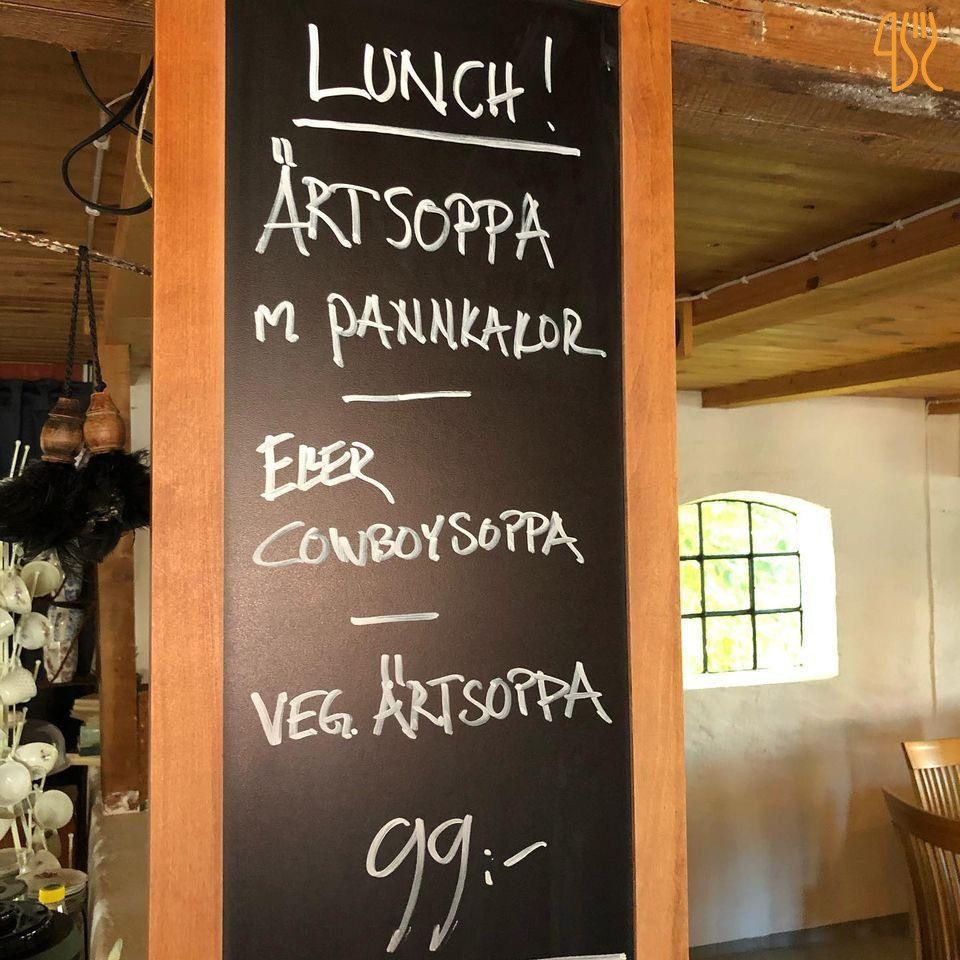 LUNCH!
ÄRTSOPPA
M PANNKAKOR
ELLER
COWBOYSOPPA
VEG. ÄRTSOPPA
99:-